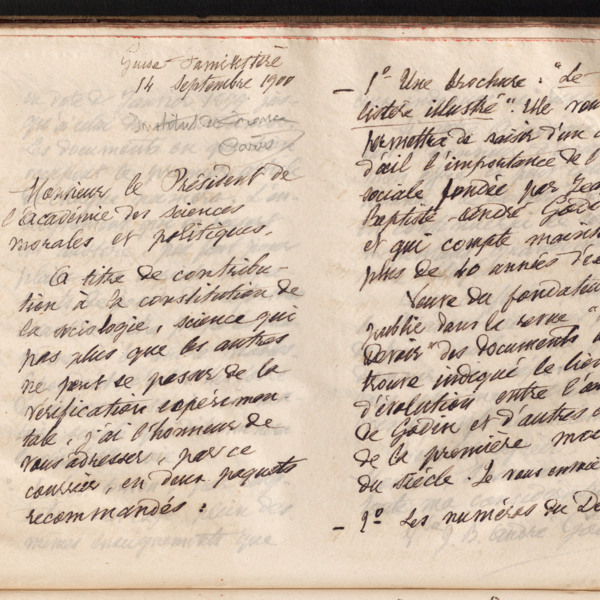 Guise Familistère
14 Septembre 1900
Institut de France
Paris
Monsieur le Président de
l'Académie des sciences
morales et politiques,
A titre de contribu-
tion à la constitution de
la sociologie, science qui
pas plus que les autres
ne peut se passer de la
vérification expérimen-
tale, j'ai l'honneur de
vous adresser, par ce
courrier, en deux paquets
recommandés :
— 1º Une brochure : "Le
listère illustré". Elle vous
permettra de saisir d'un
d'œil l'importance de l'
sociale fondée par Jean
Baptiste André Godin
et qui compte main
plus de 20 années d'ex
Veuve du fondateur
publie dans la revue "
Devoir" des documents
trouve indiqué le lien
d'évolution entre l'
de Godin et d'autres
de la première moi
du siècle. Je vous envoie
— 2º Les numéros du De